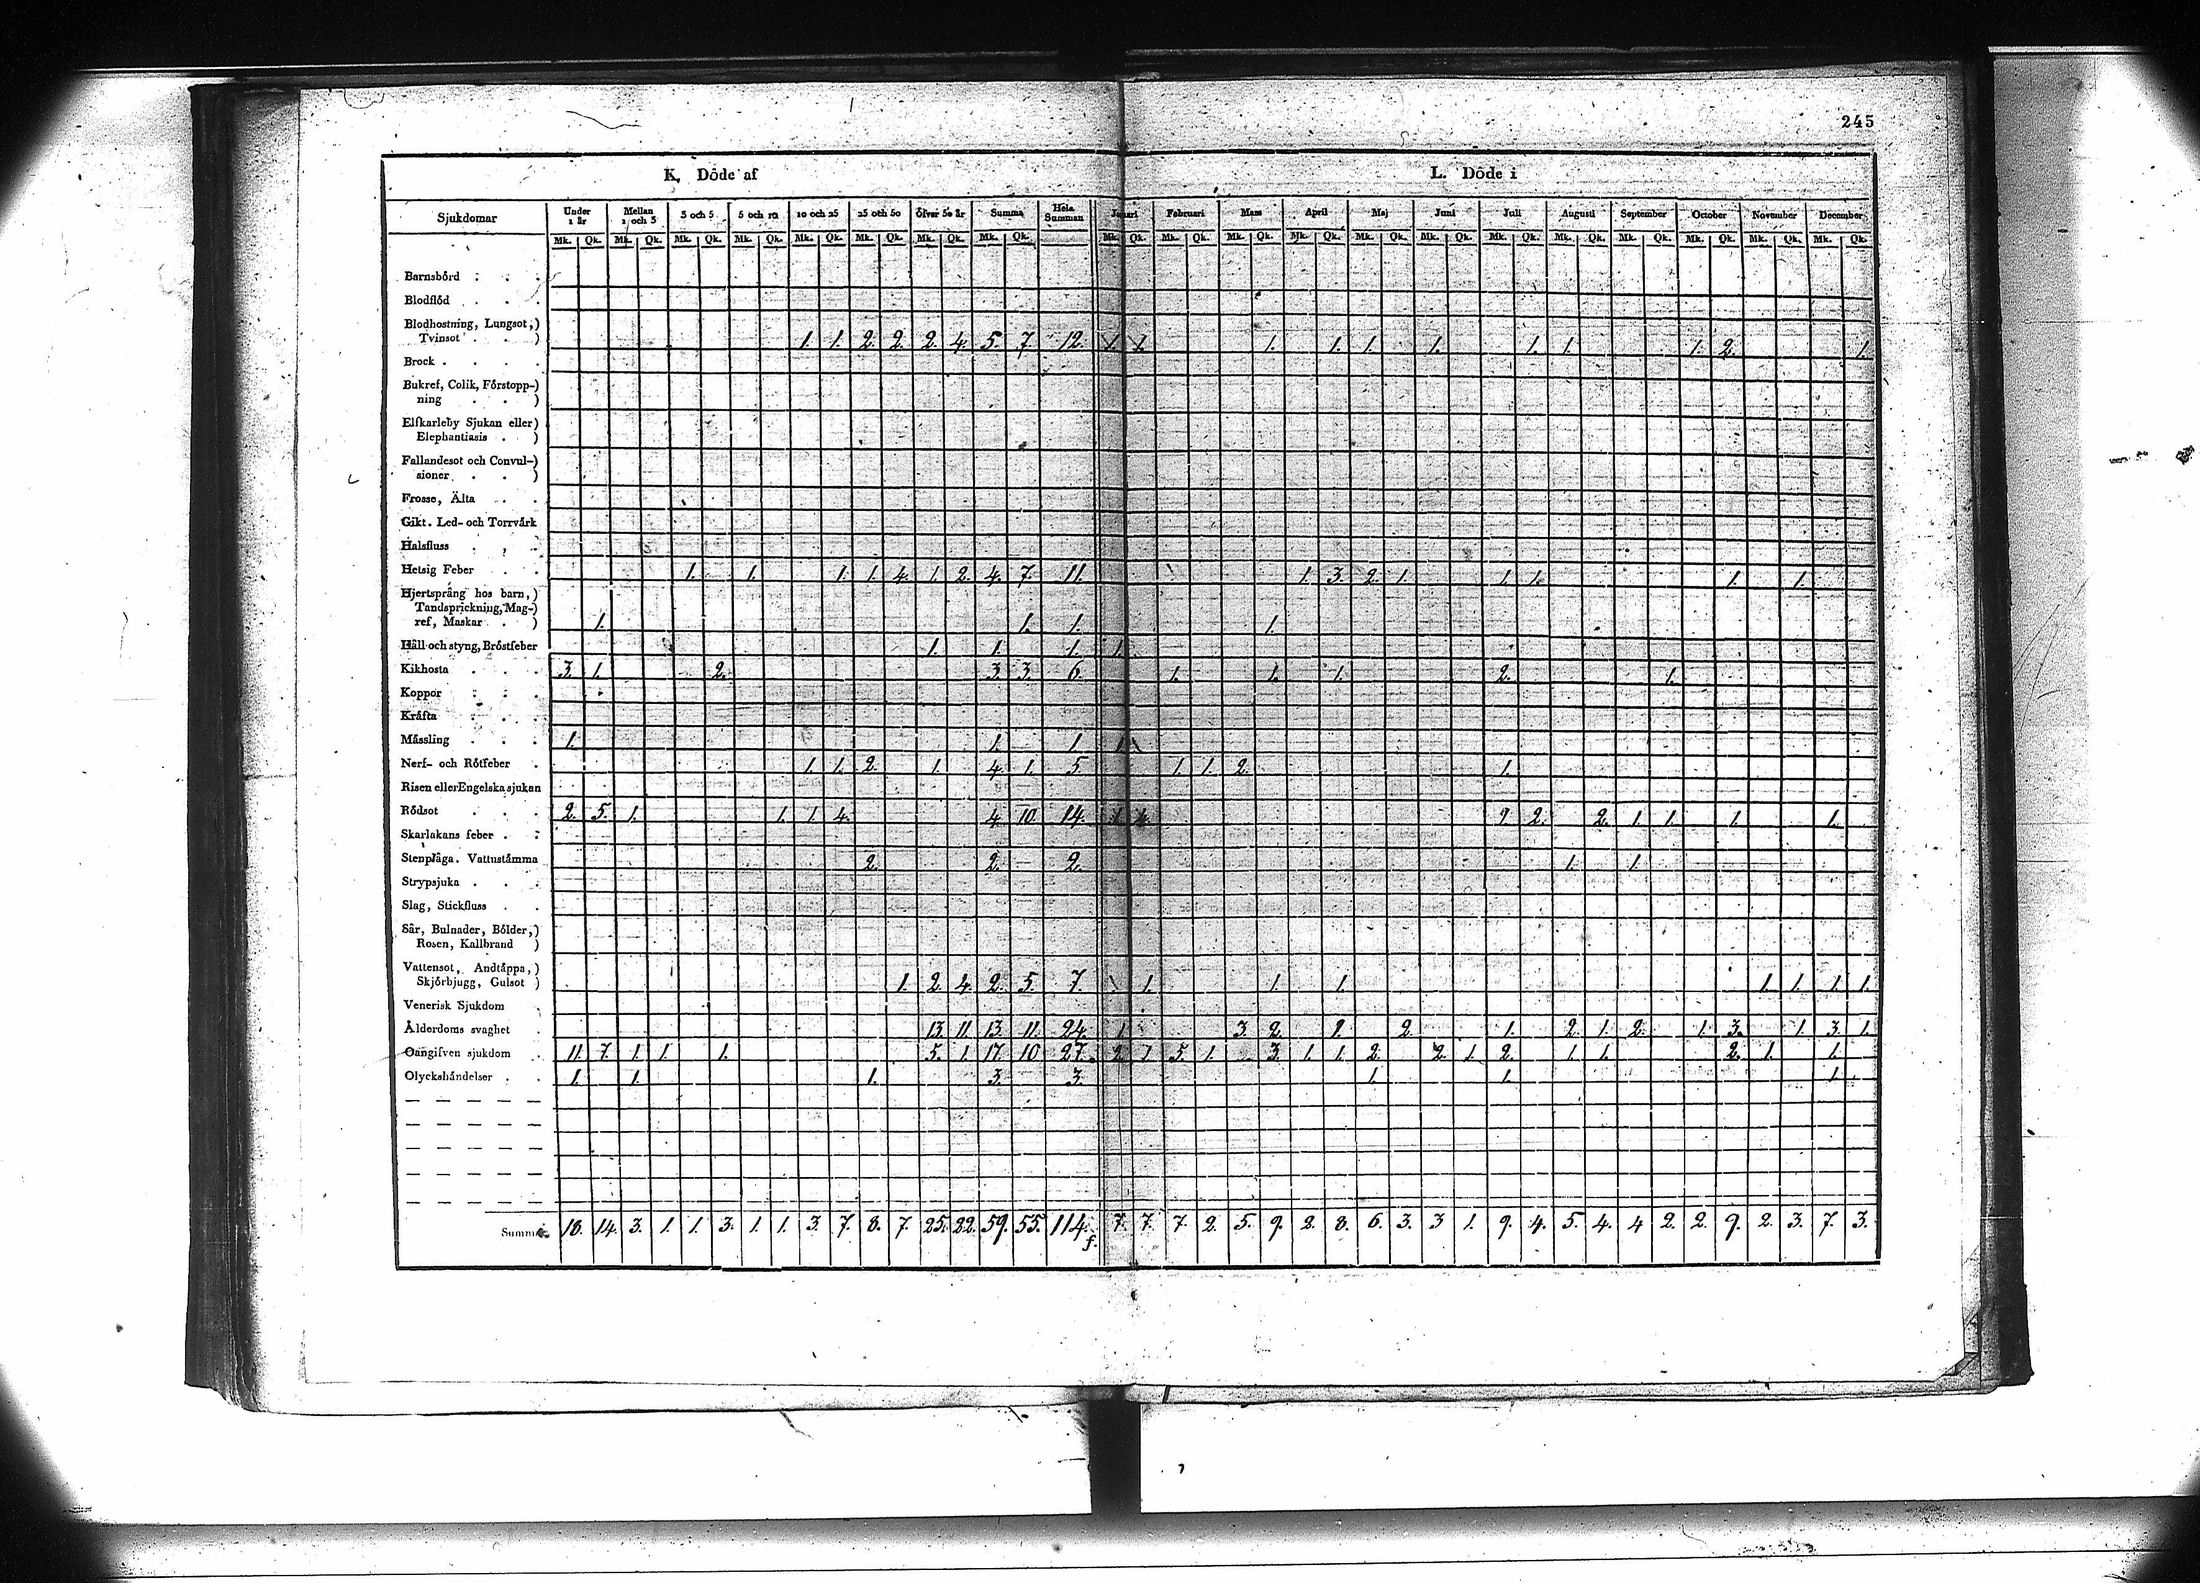 245
K. Döde af L. Döde i
Sjukdomar Under 1 år Mellan 1 och 3 3 och 5 5 och 10 10 och 25 25 och 50 öfver 50 år Summa Hela Summan Januari Februari Mars April Maj Juni Juli Augusti September October November December
Mk. Qk. Mk. Qk. Mk. Qk. Mk. Qk. Mk. Qk. Mk. Qk. Mk. Qk. Mk. Qk. Mk. Qk. Mk. Qk. Mk. Qk. Mk. Qk. Mk. Qk. Mk. Qk. Mk. Qk. Mk. Qk. Mk. Qk. Mk. Qk. Mk. Qk. Mk. Qk.
Barnsbörd
Blodflöd
Blodhostning, Lungsot,)
Tvinsot . . ) 1. 1. 2. 2. 2. 4. 5. 7 12. 1. 1. 1. 1. 1. 1. 1. 1. 1. 2. 1.
Brock
Bukref, Colik, Förstopp-)
ning . . )
Elfkarleby Sjukan eller)
Elephantiasis . )
Fallandesot och Convul-)
sioner . . )
Frosse, Älta
Gikt. Led- och Torrvärk
Halsfluss
Hetsig Feber 1. 1. 1. 1. 4. 1. 2. 4. 7. 11. 1. 3. 2. 1. 1. 1. 1. 1.
Hjertsprång hos barn,)
Tandsprickning, Mag-)
ref, Maskar . ) 1. 1. 1. 1.
Håll och styng, Bröstfeber 1. 1. 1. 1.
Kikhosta 3. 1. 2. 3 3. 6. 1. 1. 1. 2. 1.
Koppor
Kräfta
Mässling 1. 1. 1 1
Nerf- och Rötfeber 1. 1. 2. 1. 4. 1. 5. 1. 1. 2. 1.
Risen eller Engelska sjukan
Rödsot 2. 5. 1. 1. 1. 4. 4 10. 14. 2. 2. 1. 1. 1. 1.
Skarlakans feber
Stenplåga. Vattustämma 2. 2. 2. 1. 1.
Strypsjuka
Slag, Stickfluss
Sår, Bulnader, Bölder,)
Rosen, Kallbrand )
Vattensot, Andtäppa,)
Skjörbjugg, Gulsot ) 1. 2. 4. 2. 5. 7. 1. 1. 1. 1. 1. 1. 1.
Venerisk Sjukdom
Ålderdoms svaghet 13 11. 13. 11. 24. 1. 3. 2. 2. 2. 1. 2. 1. 2. 1. 3. 1. 3. 1.
Oangifven sjukdom 11. 7. 1. 1. 1. 5. 1. 17. 10 27. 2. 7 5. 1. 3. 1. 1. 2. 2. 1. 2. 1. 1. 2. 1. 1.
Olyckshändelser 1. 1. 1. 3. 3. 1. 1. 1.
Summa 18. 14. 3. 1. 1. 3. 1. 1. 3. 7. 8. 7. 25. 22. 59. 55. 114. 7. 7. 7. 2. 5. 9. 2. 8. 6. 3. 3 1. 9. 4. 5. 4. 4 2. 2. 9. 2. 3. 7. 3.